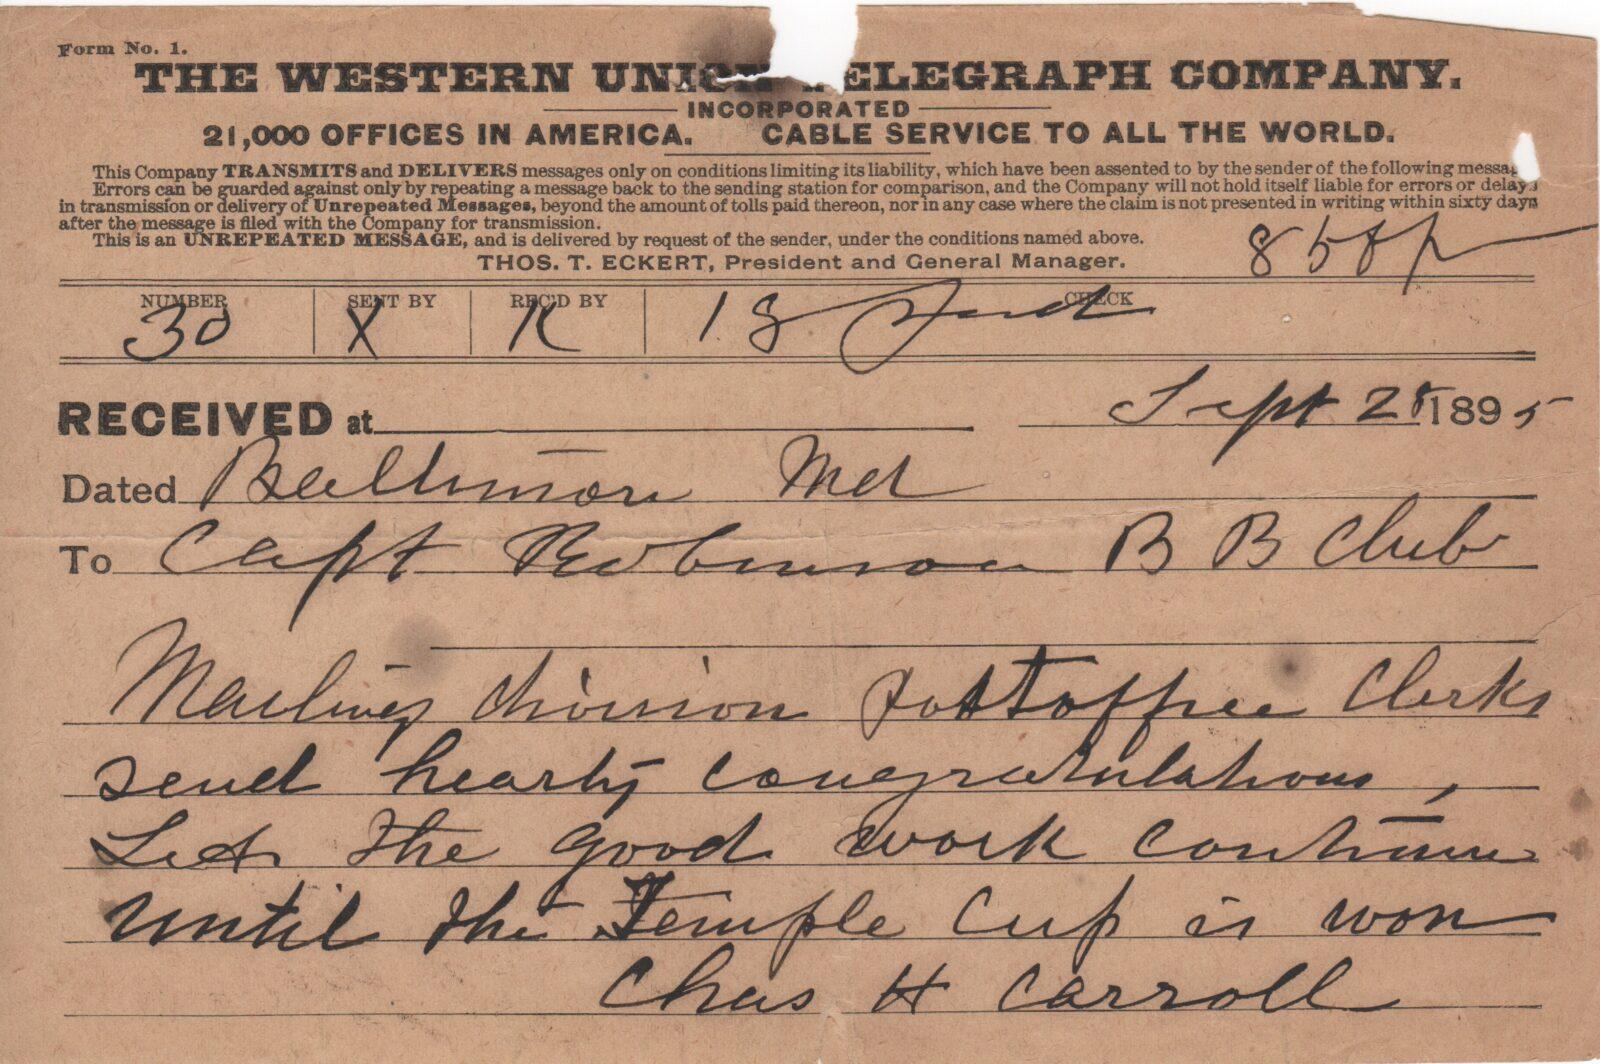 Form No. 1.
THE WESTERN UNION TELEGRAPH COMPANY.
INCORPORATED
21,000 OFFICES IN AMERICA. CABLE SERVICE TO ALL THE WORLD.
This Company TRANSMITS and DELIVERS messages only on conditions limiting its liability, which have been assented to by the sender of the following message.
Errors can be guarded against only by repeating a message back to the sending station for comparison, and the Company will not hold itself liable for errors or delays
in transmission or delivery of Unrepeated Messages, beyond the amount of tolls paid thereon, nor in any case where the claim is not presented in writing within sixty days
after the message is filed with the Company for transmission.
This is an UNREPEATED MESSAGE, and is delivered by request of the sender, under the conditions named above.
THOS. T. ECKERT, President and General Manager.
NUMBER SENT BY REC'D BY CHECK
30 X K 18
RECEIVED at Sept 28 1895
Dated Baltimore Md
To Capt Robinson B B Club
Mailing division Postoffice Clerks
send hearty congratulations,
Let the good work continue
until the Temple Cup is won
Chas H Carroll